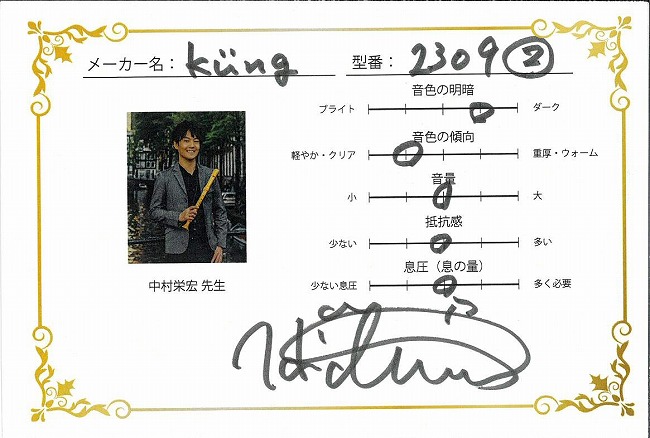 メーカー名： Küng 型番： 2309 ②
音色の明暗
ブライト ダーク
音色の傾向
軽やか・クリア 重厚・ウォーム
音量
小 大
抵抗感
少ない 多い
息圧（息の量）
少ない息圧 多く必要
中村栄宏 先生